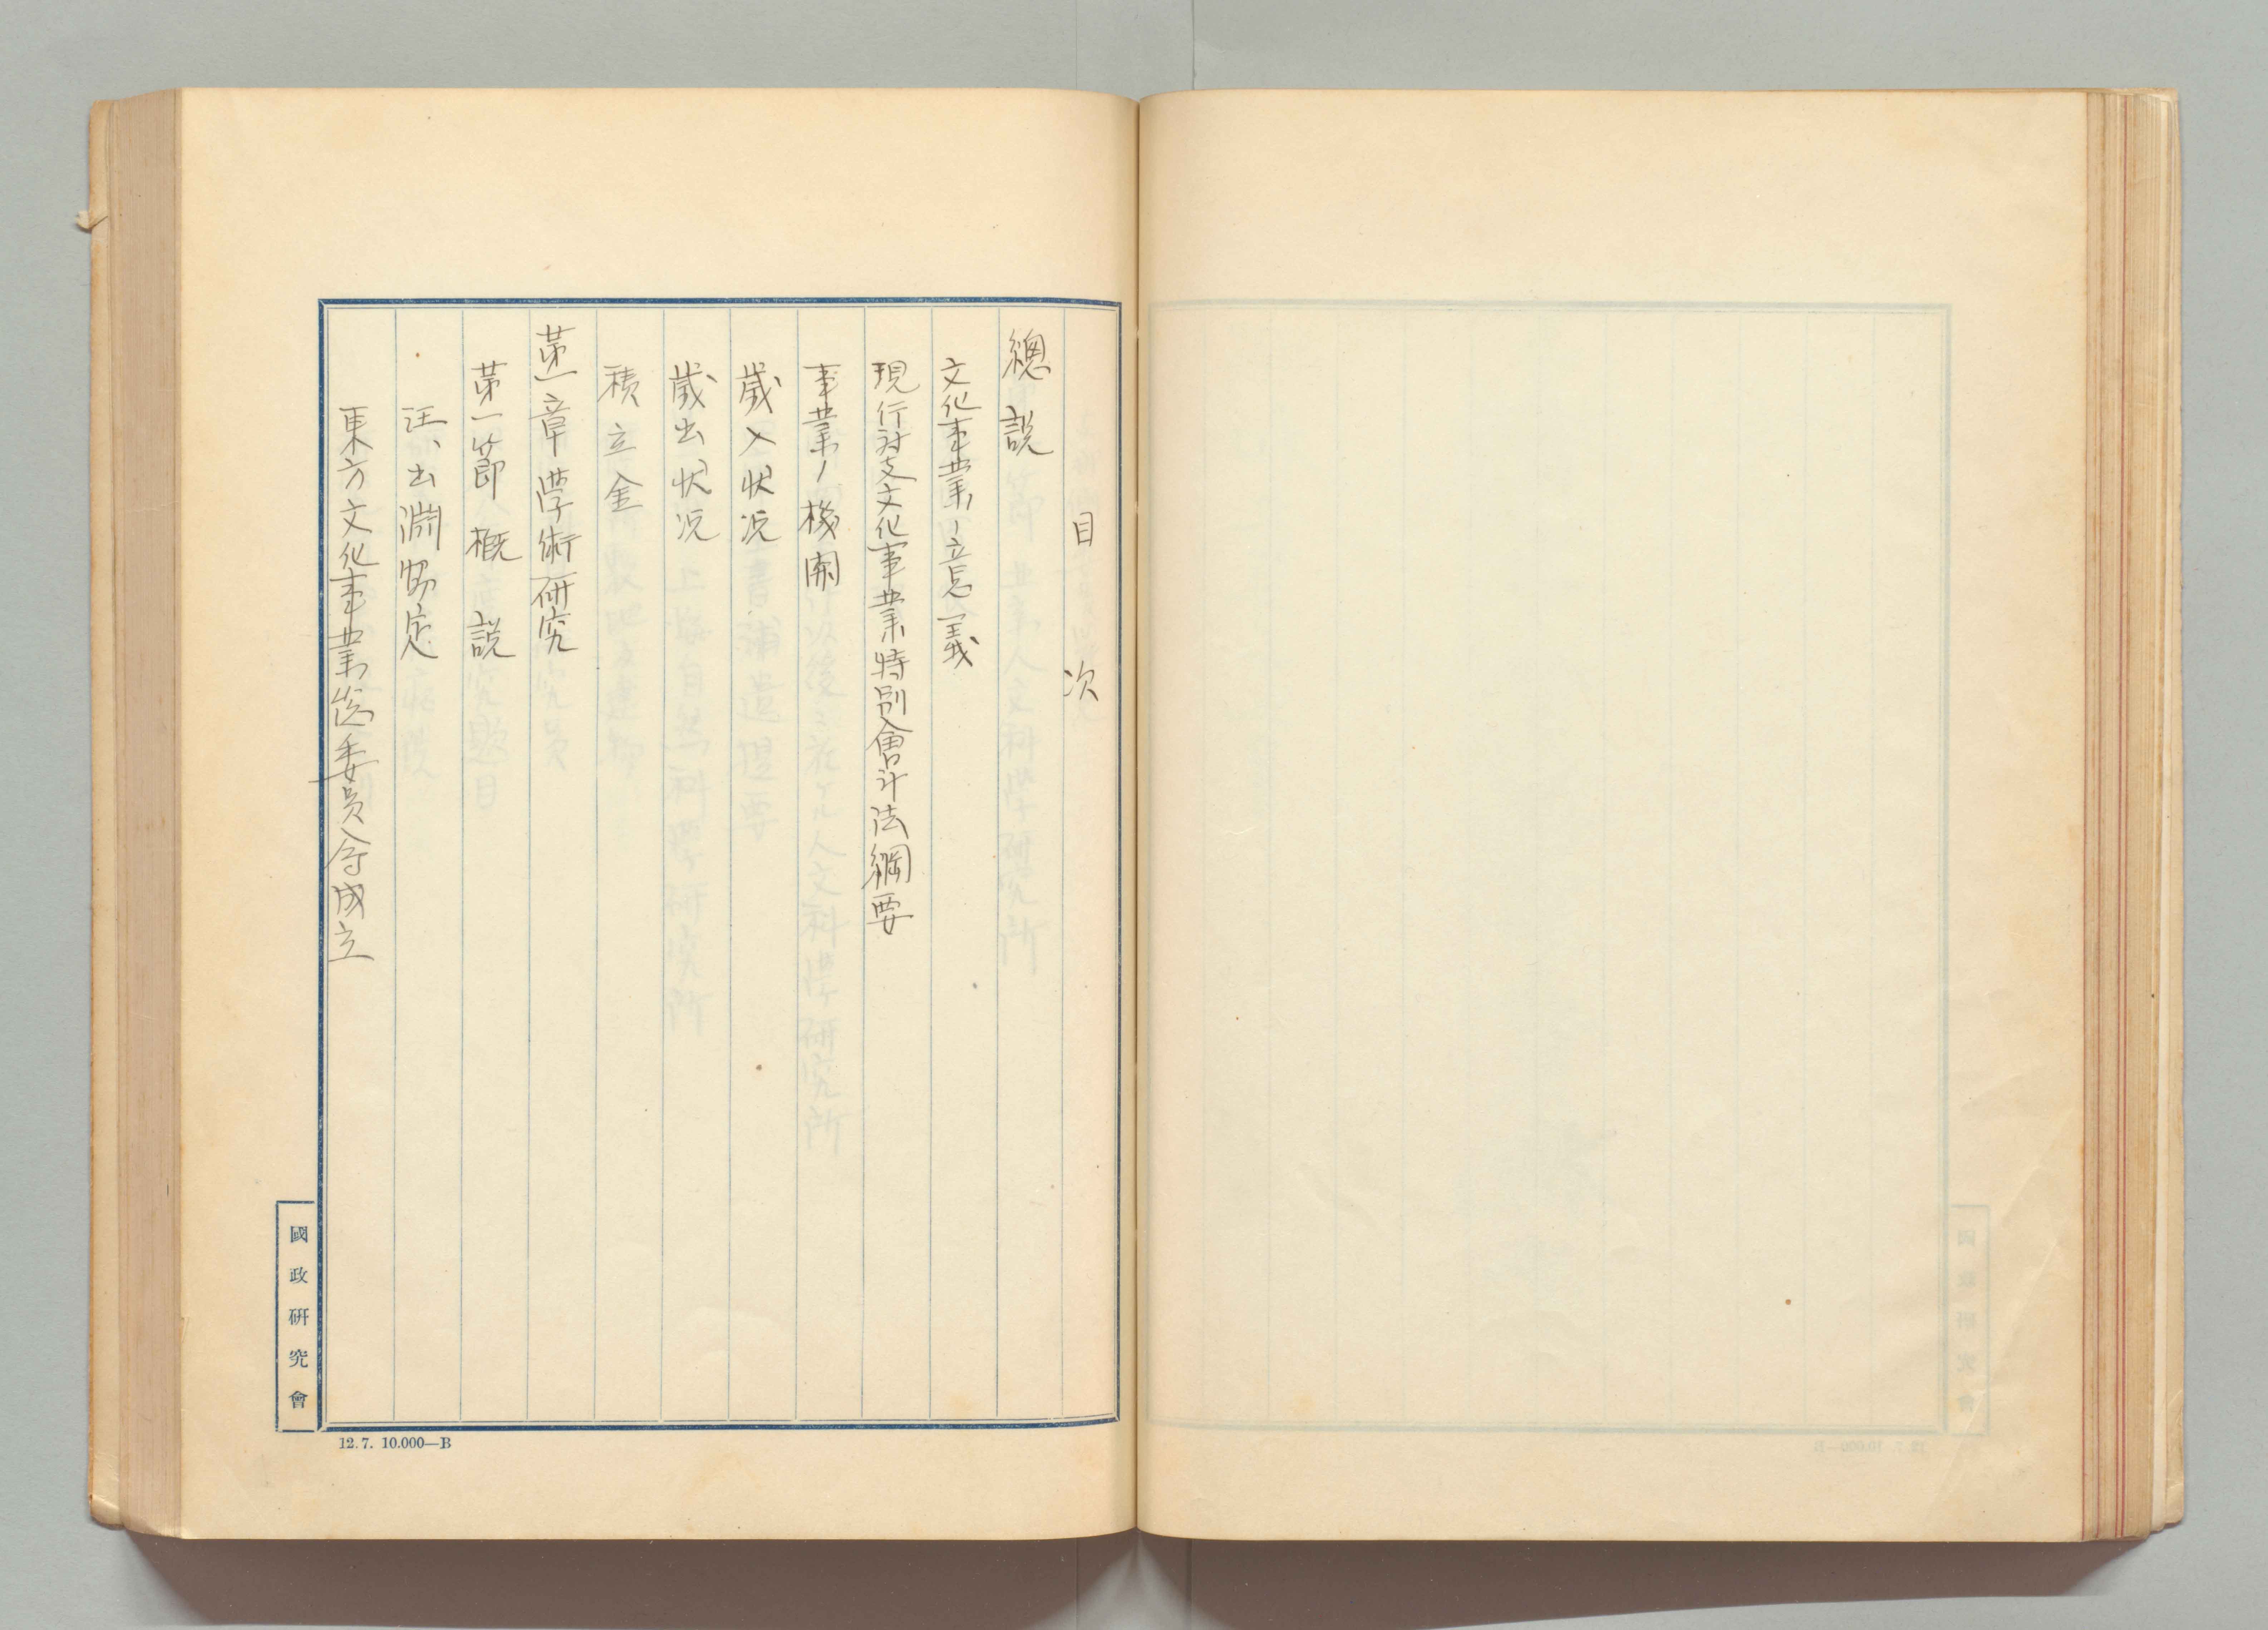 目次
總説
文化事業ノ意義
現行対支文化事業特別會計法綱要
事業ノ機関
歳入状况
歳出状况
積立金
第一章 學術研究
第一節 概説
汪、出淵協定
東方文化事業総委員会成立
國政研究會
12.7. 10.000—B